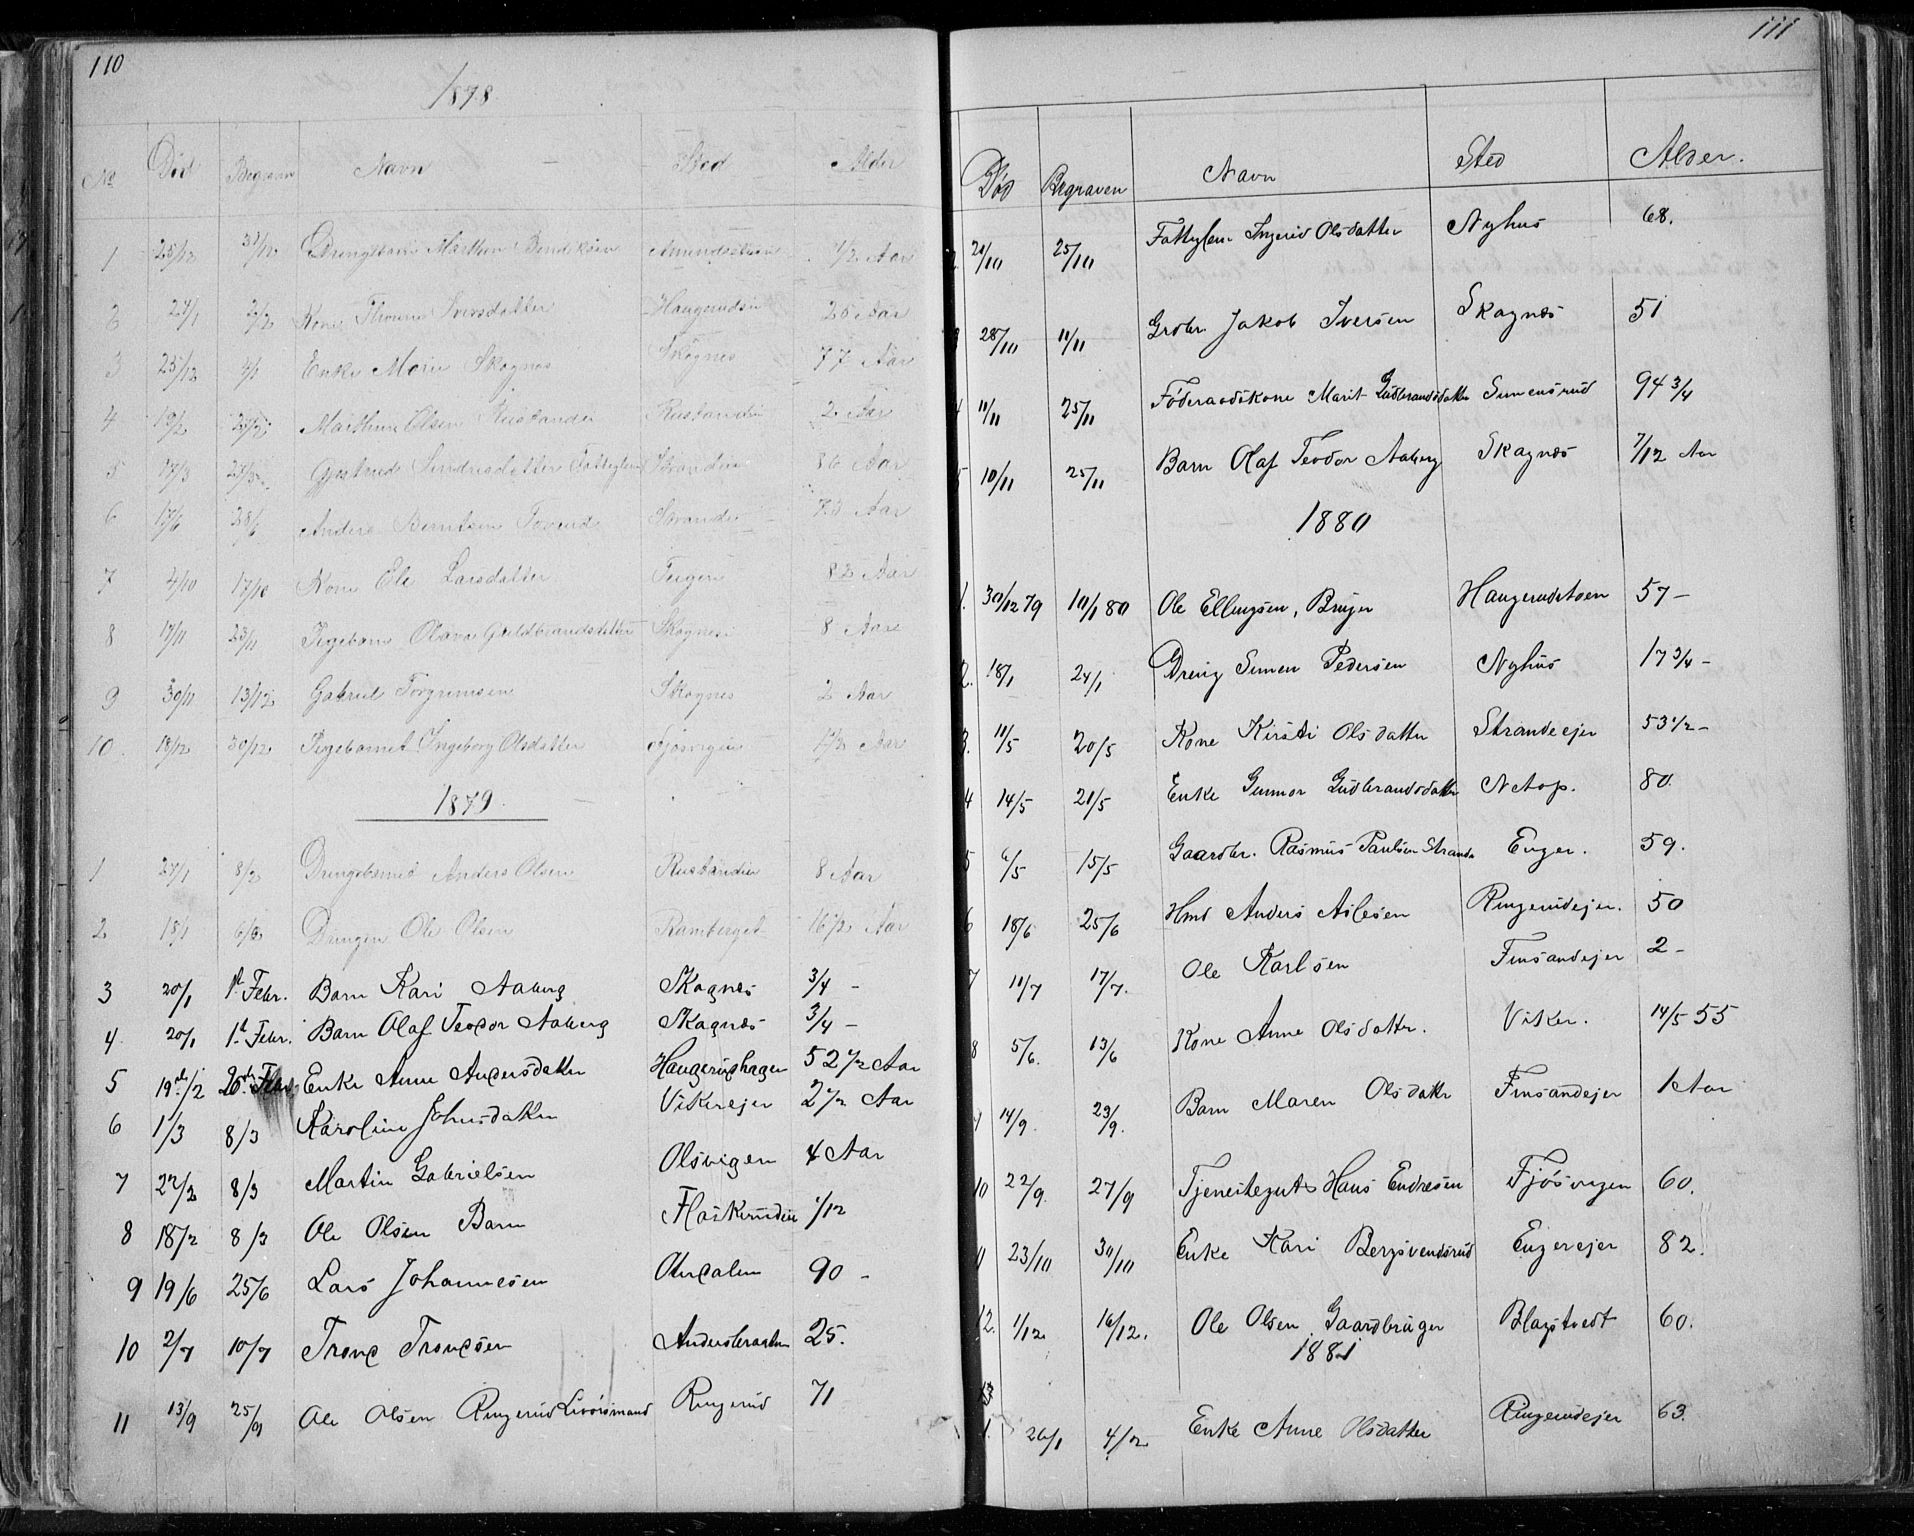 110
1878.
No Død Begraven Navn Sted Alder
1 25/12 31/12 Drengebarn Marthin Amundseien 1/2 Aar
2 27/1 2/2 Kone Iversdatter Haugerudsei 25 Aar
3 25/12 4/1 Enke Marie Skagnes Skognes 77 Aar
4 13/2 Marthin Olsen Rustandei Rustandei 2 Aar
5 17/3 Sindresdatter Fattiglem Stranden 86 Aar
6 17/6 25/6 Anders Berntsen Strande 73 Aar
7 4/10 17/10 Kone Eli Larsdatter 82 Aar
8 17/11 23/11 Pigebarn Olava Guldbrandsdatter Skognesei 8 Aar
9 30/11 13/12 Gabriel Torgrimsen Skognes 2 Aar
10. 18/12 30/12 Pigebarnet Ingeborg Olsdatter Fjøsvigen 1/2 Aar
1879.
1 27/1 8/2 Drengebarnet Anders Olsen Rustandeie 8 Aar
2 18/1 6/2 Drengen Ole Olsen Ramberget 16 1/2 Aar
3 20/1 1st Febr. Barn Kari Aaberg Skagnæs 3/4 -
4 20/1 1st Febr. Barn Olaf Teodor Aaberg Skagnæs 3/4 -
5 19de/2 Enke Anne Andersdatter Haugerudhagen 52 1/2 Aar
6 1/3 8/3 Karoline Johnsdatter Vikerejer 2 1/2 Aar
7 22/2 8/3 Martin Gabrielsen Olsvigen 4 Aar
8 18/2 8/3 Ole Olsen Barn Flaskerudeie 1/12
9 19/6 25/6 Lars Johannesen Aadalen 90 -
10 2/7 10/7 Trond Trondsen Andersbraaten 25.
11 13/9 25/9 Ole Olsen Ringerud Livørsmand Ringerud 71
111
Død Begraven Navn Sted Alder.
21/10 25/10 Fattiglem Ingerid Olsdatter Nyhus 68.
28/10 11/11 Grdbr. Jakob Iversen Skagnæs 51
11/11 25/11 Föderaadskone Marit Gudbrandsdatter Simensrud 94 3/4
5 10/11 25/11 Barn Olaf Teodor Aaberg Skagnæs 7/12 Aar
1880
1. 30/12 79 10/1 80 Ole Ellingsen, Bruger Haugerudstøen 57 -
2. 18/1 24/1 Dreng Simen Pedersen Nyhus 17 3/4 -
3. 11/5 20/5 Kone Kirsti Olsdatter Strandeejer 53 1/2 -
4 14/5 21/5 Enke Gunnor Gudbrandsdatter N Aap. 80.
5 6/5 15/5 Gaardbr. Rasmus Paulsen Strande Enger. 59.
6 18/6 25/6 Hmd Anders Aslesen Ringerudejer. 50
7 11/7 17/7. Ole Karlsen Finsandejer 2 -
8 5/6. 13/6 Kone Anne Olsdatter. Viker. 14/5 55
9 14/9. 23/9. Barn Maren Olsdatter Finsandejer 1 Aar
10 22/9. 27/9 Tjenestegut Hans Endresen Fjösvigen 60.
11 23/10 30/10 Enke Kari Bergsvendsrud Engerejer 82.
12. 1/12. 16/12. Ole Olsen Gaardbruger Blagstvedt 60.
1881
1. 26/1 4/2 Enke Anne Olsdatter Ringerudejer 63.